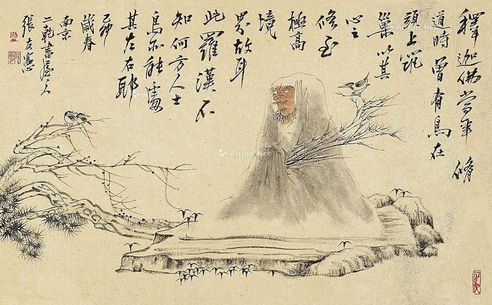 釋迦佛當年修
道時曾有鳥在
頭上
巢以其
心之
修至
極高
境
界故耳
此羅漢不
知何方人士
鳥亦能
其左右耶
卯
歲春
南京
二乾書屋主人
張友憲
Artron.Net